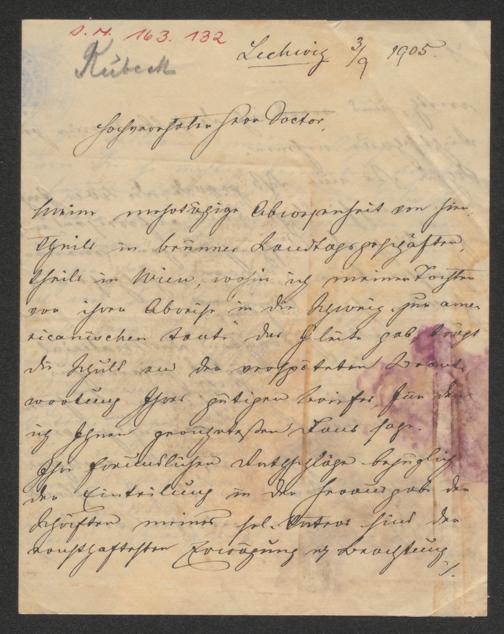 J. N. 163.132
Kübeck
Lechwitz 3/9 1905.
Hochverehrter Herr Doctor,
Meine mehrtägige Abwesenheit von hier,
theils in Brünner Landtagsgeschäften,
theils in Wien, wohin ich meiner Tochter
vor ihrer Abreise in die Schweiz zur ame-
ricanischen Tante das Geleite gab, trägt
die Schuld an der verspäteten Beant-
wortung Ihres gütigen Briefes für den
ich Ihnen geehrtesten Dank sage.
Ihre freundlichen Rathschläge bezüglich
der Einteilung in der Herausgabe der
Schriften meines sel. Vaters sind der
ernsthaftesten Erwägung u. Beachtung
./.